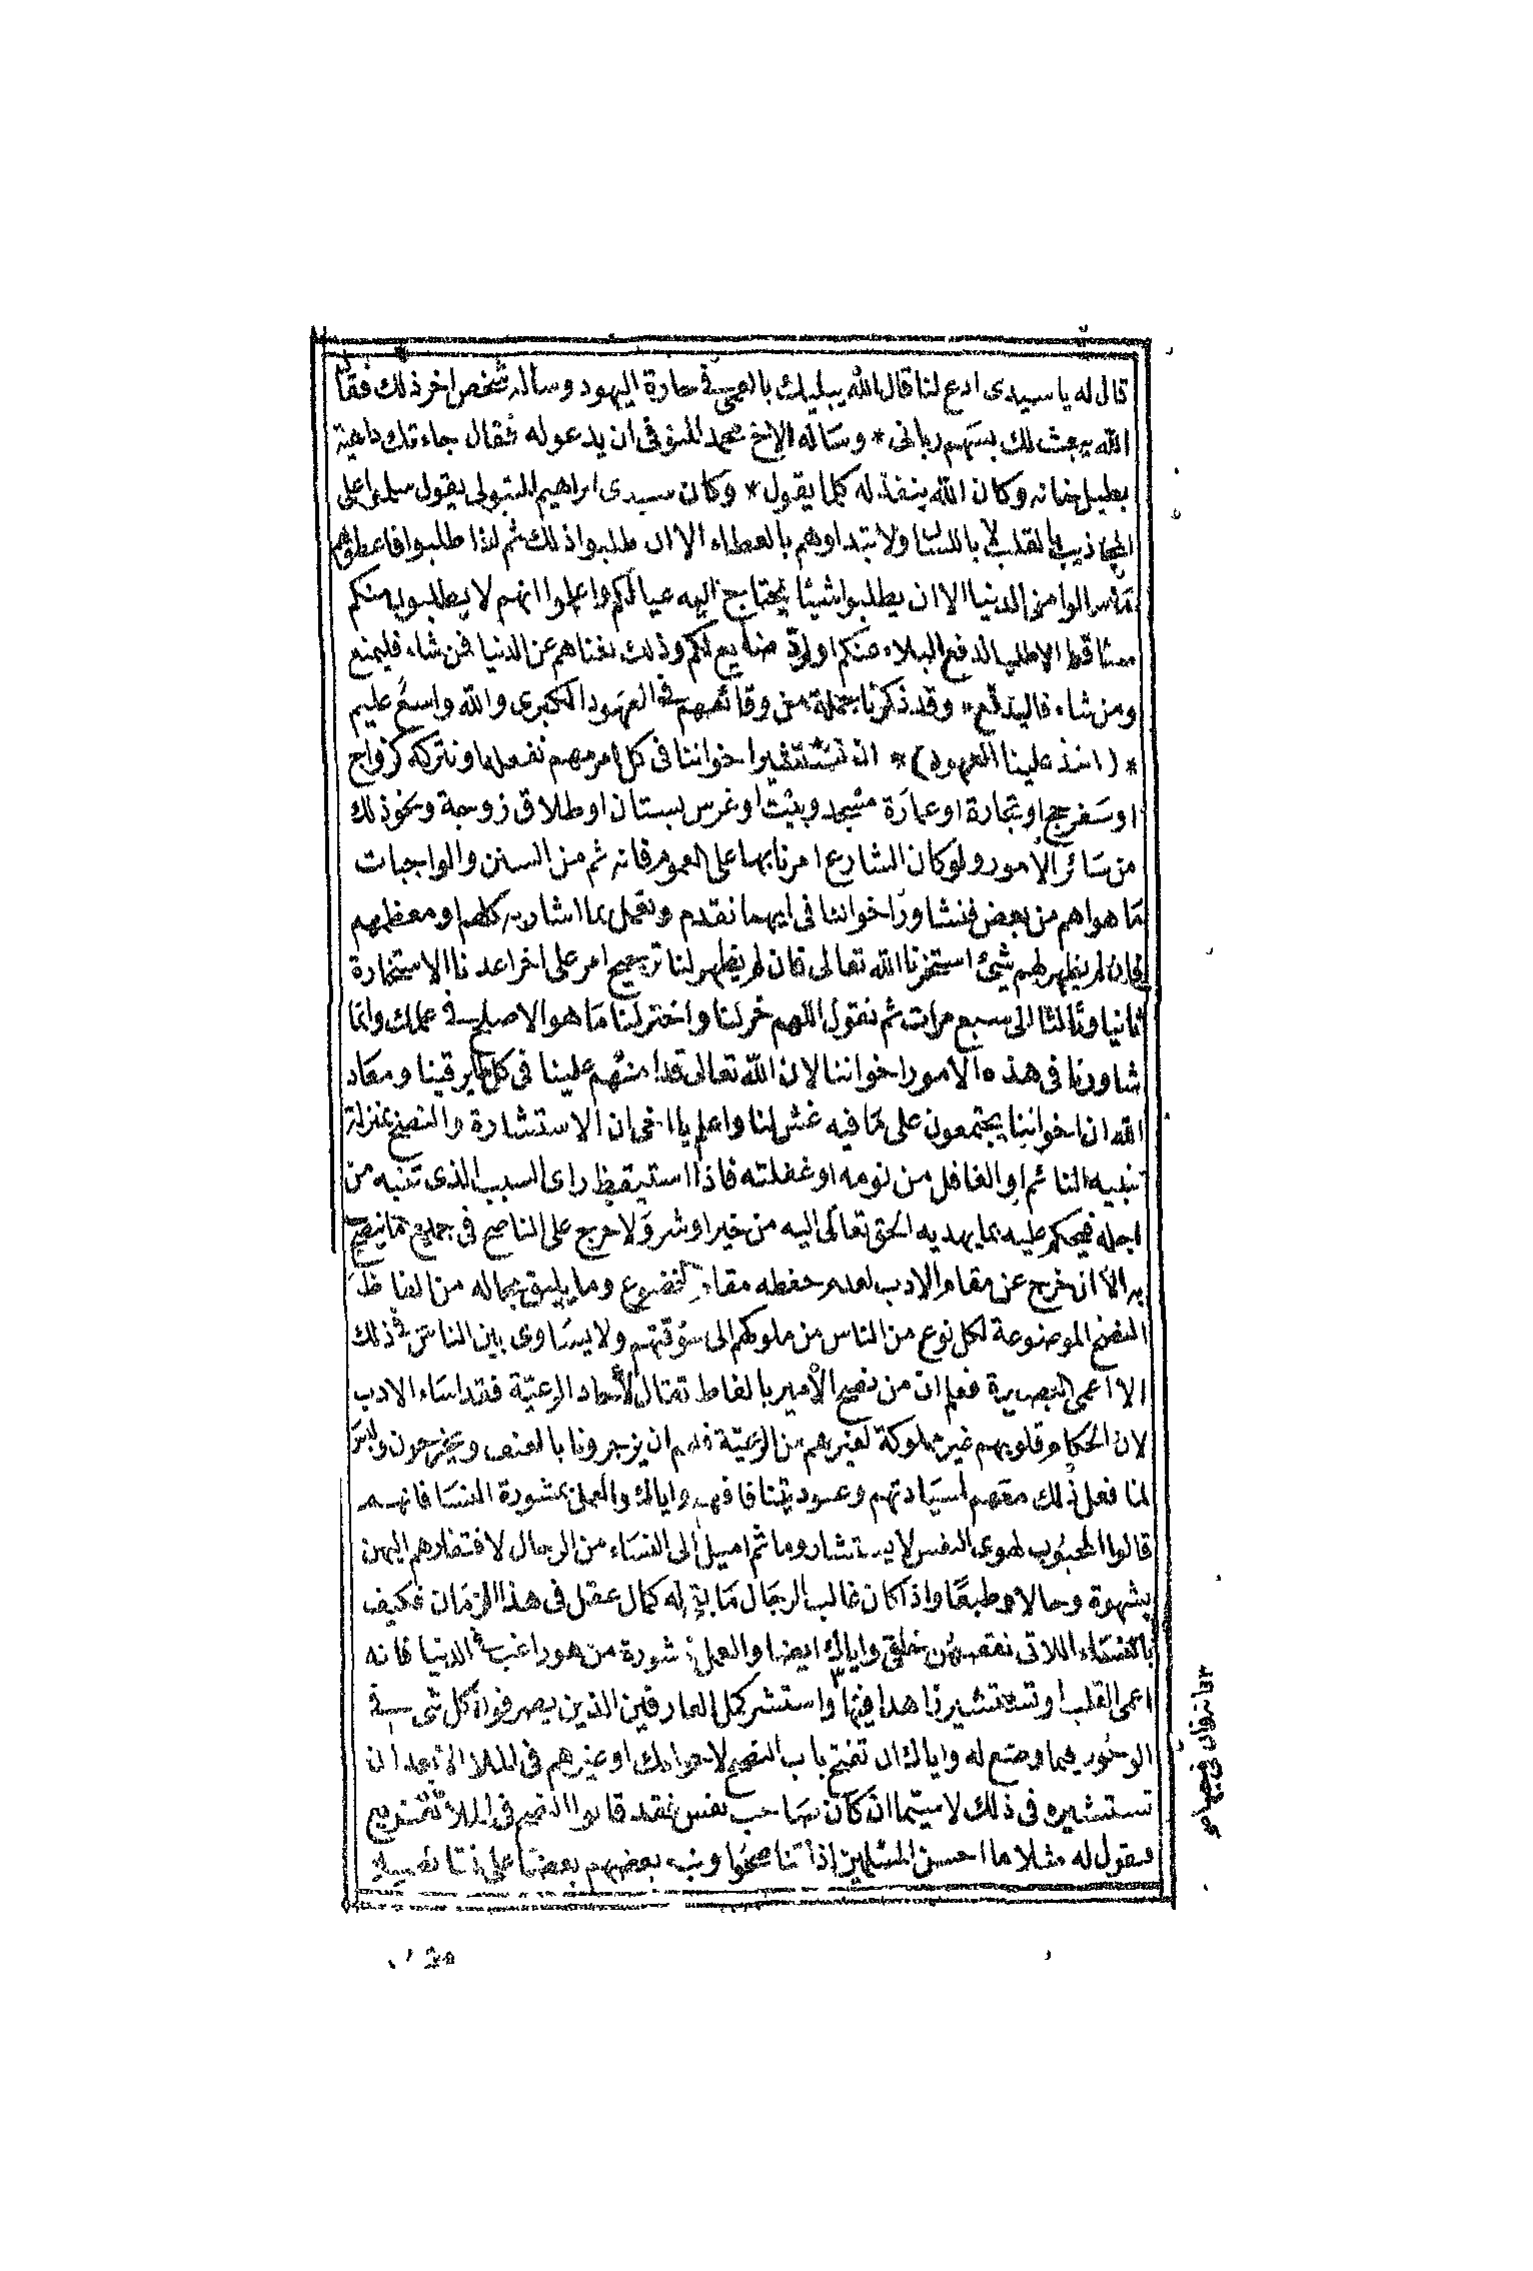 قال له يا سيدى ادع لنا قال الله يبليك بالعمى فى حارة اليهود وساله شخص اخر ذلك فقال
الله يبعث لك بسهم ربانى * وساله الاخ محمد المنوفى ان يدعو له فقال جاءتك داهية
بطبلخانه وكان الله ينفذ له كلما يقول * وكان سيدى ابراهيم المتبولى يقول سلموا على
المجاذيب بالقلب لا باللسان ولا تبداوهم بالعطاء الا ان طلبوا ذلك ثم اذا طلبوا فاعطوهم
ما سالوا من الدنيا الا ان يطلبوا شيئا يحتاج اليه عيالكم واعلموا انهم لا يطلبون منكم
شيئا قط الا طلبا لدفع البلاء عنكم او لرد ضايع لكم وذلك لغناهم عن الدنيا فمن شاء فليمنع
ومن شاء فاليدفع * وقد ذكرنا جملة من وقائعهم فى العهود الكبرى والله واسع عليم
* (اخذ علينا العهود) * ان نستشير اخواننا فى كل امر مهم نفعله او نتركه كزواج
او سفر حج او تجارة او عمارة مسجد وبيت او غرس بستان او طلاق زوجة ونحو ذلك
من سائر الامور ولو كان الشارع امرنا بها على العموم فانه ثم من السنن والواجبات
ما هو اهم من بعض فنشاور اخواننا فى ايهما نقدم ونعمل بما اشار به كلهم او معظمهم
فان لم يظهر لهم شئ استخرنا الله تعالى فان لم يظهر لنا ترجيح امر على اخر اعدنا الاستخارة
ثانيا وثالثا الى سبع مرات ثم نقول اللهم خر لنا واختر لنا ما هو الاصلح فى علمك وانما
شاورنا فى هذه الامور اخواننا لان الله تعالى قد امنهم علينا فى كل ما يرقينا ومعاذ
الله ان اخواننا يجتمعون على ما فيه غش لنا واعلم يا اخى ان الاستشارة والنصح بمنزلة
تنبيه النائم او الغافل من نومه او غفلته فاذا استيقظ راى السبب الذى تنبه من
اجله فيحكم عليه بما يهديه الحق تعالى اليه من خير او شر ولا حرج على الناصح فى جميع ما ينصح
به الا ان خرج عن مقام الادب لعدم حفظه مقادير الخضوع وما يليق بحاله من الفاظ
النصح الموضوعة لكل نوع من الناس من ملوكهم الى سوقتهم ولا يساوى بين الناس فى ذلك
الا اعمى البصيرة فعلم ان من نصح الامير بالفاظ تقال لآحاد الرعية فقد اساء الادب
لان الحكام وقلوبهم غير مملوكة لغيرهم من الرعية فلهم ان يزجرونا بالعنف ويخرجون وليس
لنا فعل ذلك معهم لسيادتهم وعبوديتنا فافهم واياك والعمل بمشورة النسا فانهم
قالوا المحبوب لهوى النفس لا يستشار وما ثم اميل الى النساء من الرجال لافتقارهم اليهن
بشهوة وحالا وطبعا واذا كان غالب الرجال ما بقى له كمال عقل فى هذا الزمان فكيف
بالنساء اللاتى نقصهن خلقى واياك ايضا والعمل بمشورة من هو راغب فى الدنيا فانه
اعمى القلب او تستشير زاهدا فيها واستشر كمل العارفين الذين يصرفون كل شى فى
الوجود فيما وضع له واياك ان تفتح باب النصح لاخوانك او غيرهم فى الملا الا بعد ان
تستشيره فى ذلك لا سيما ان كان صاحب نفس فقد قالوا النصح فى الملا تقريع
فتقول له مثلا ما احسن المسلمين اذا تناصحوا ونبه بعضهم بعضا على نقايصه